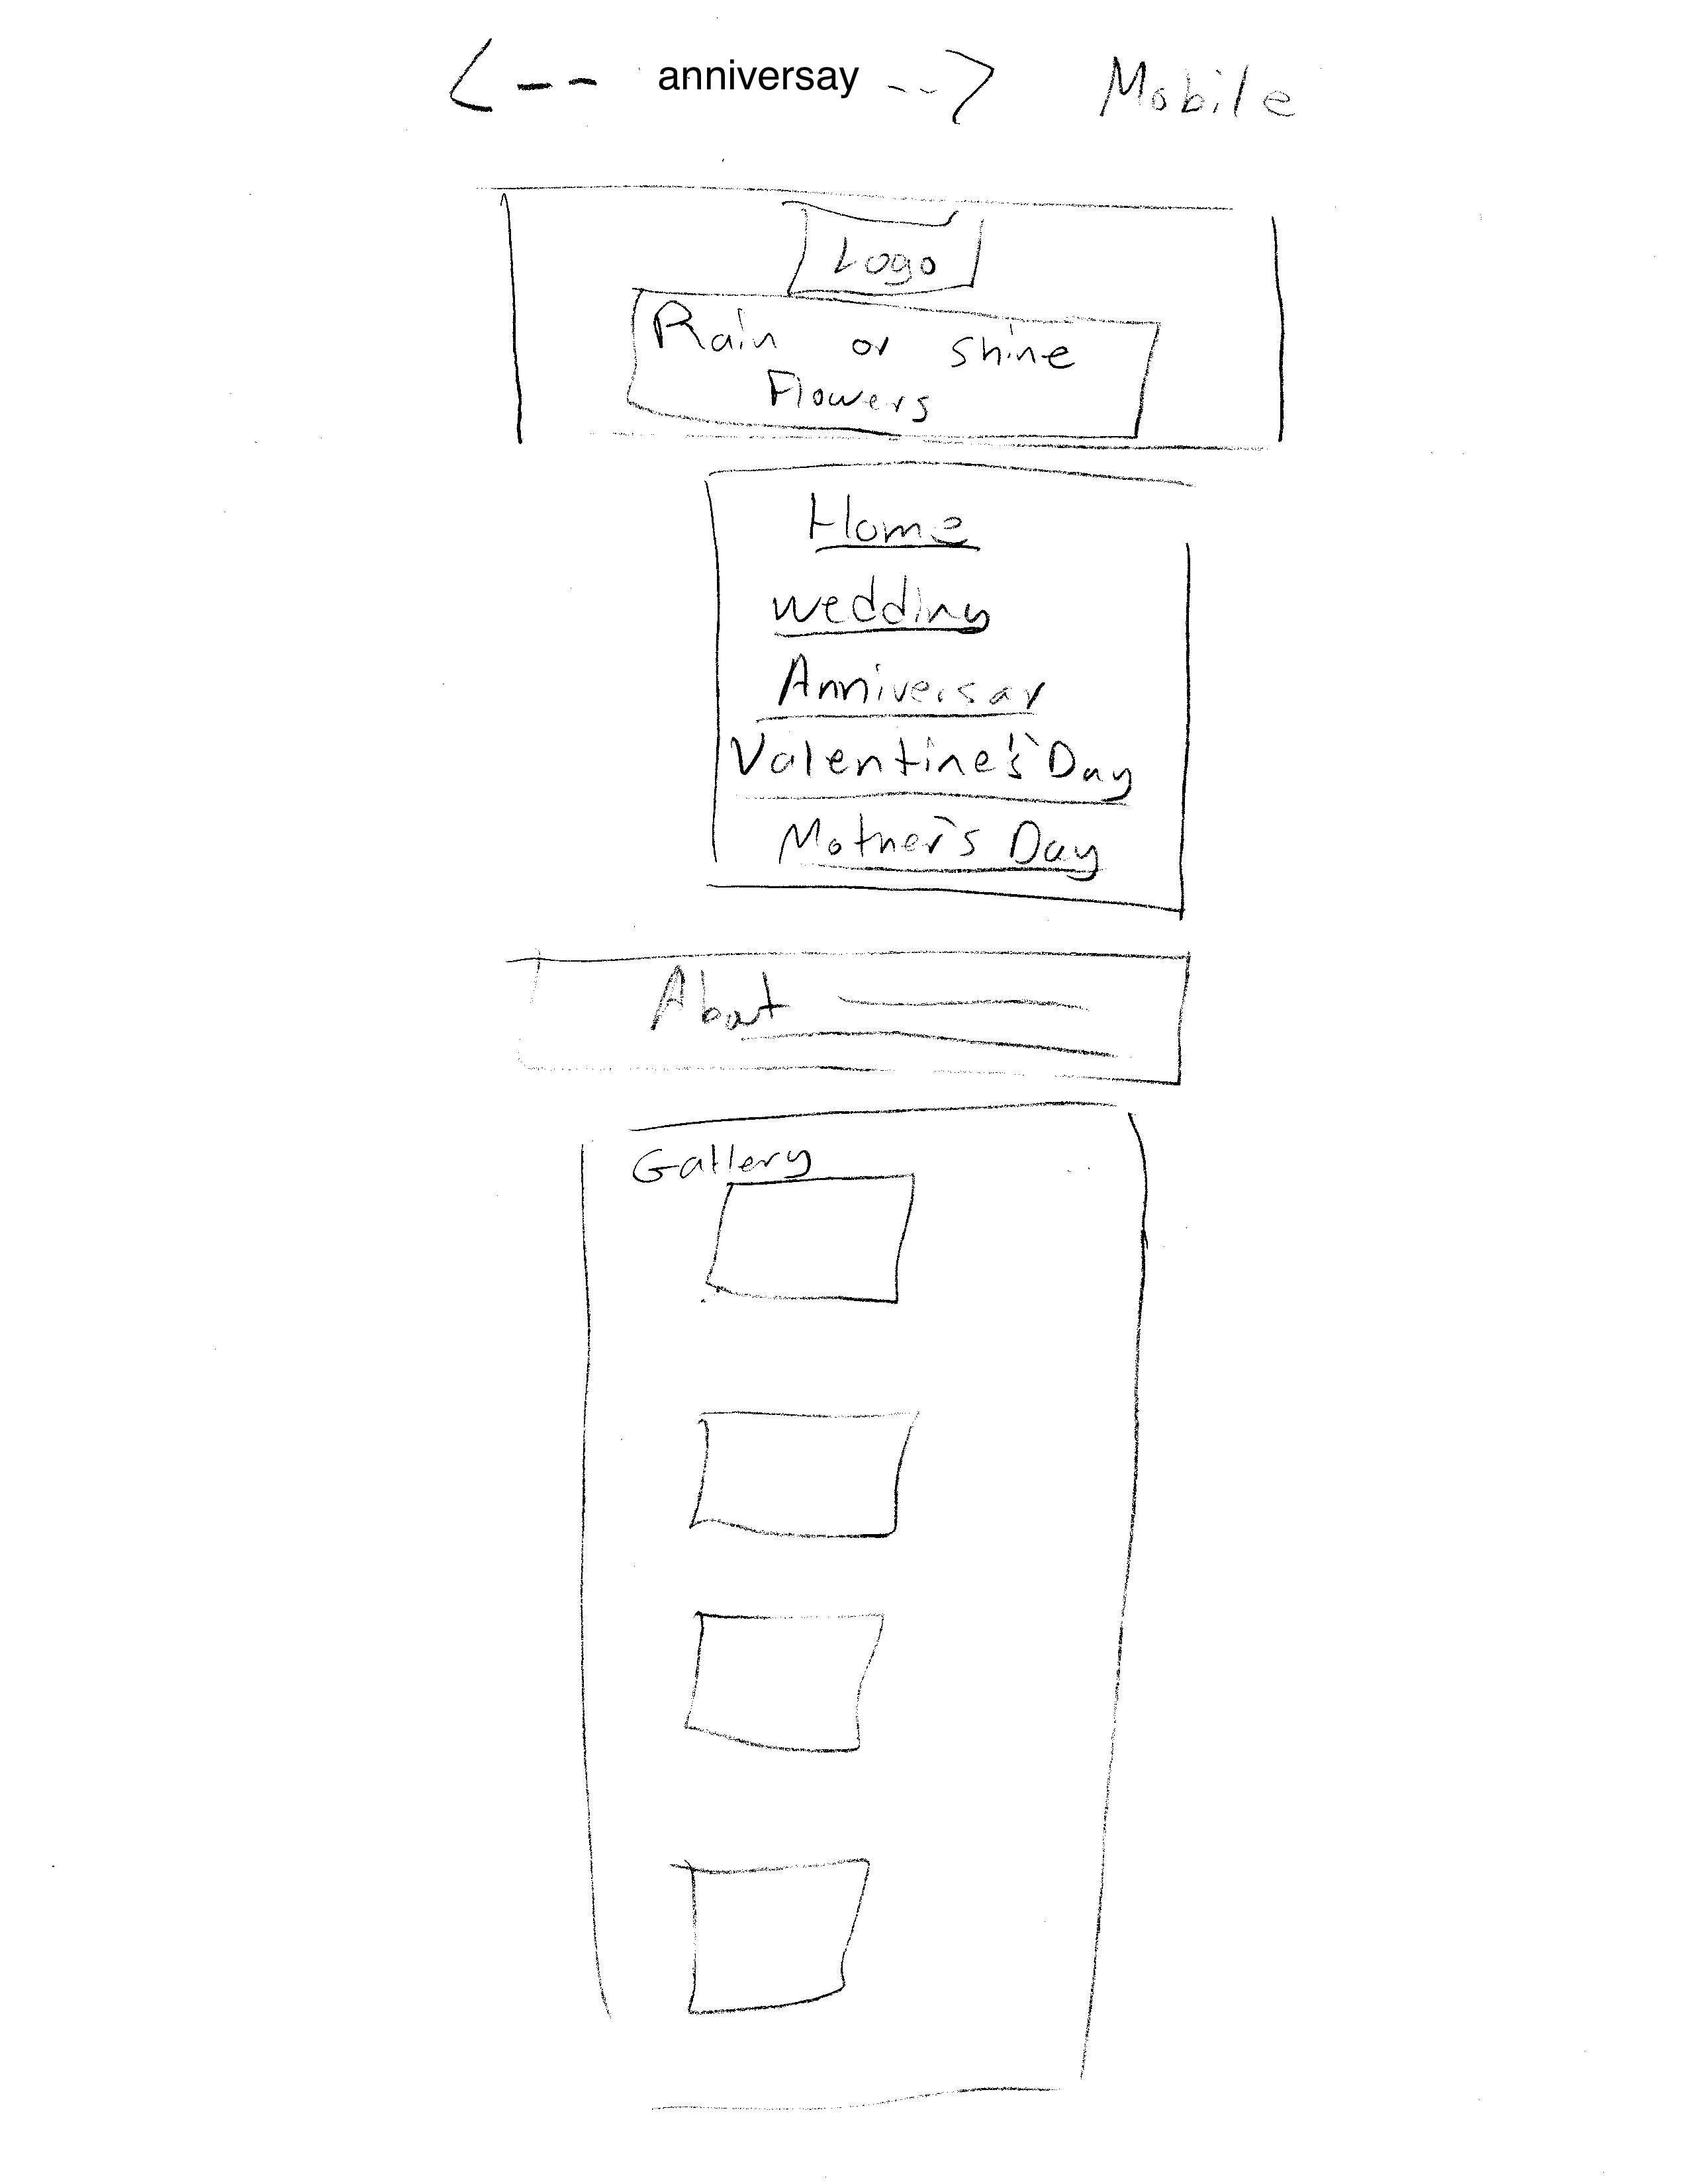 <-- anniversay --> Mobile
Logo
Rain or shine
Flowers
Home
wedding
Anniversay
Valentine's Day
Mother's Day
About
Gallery